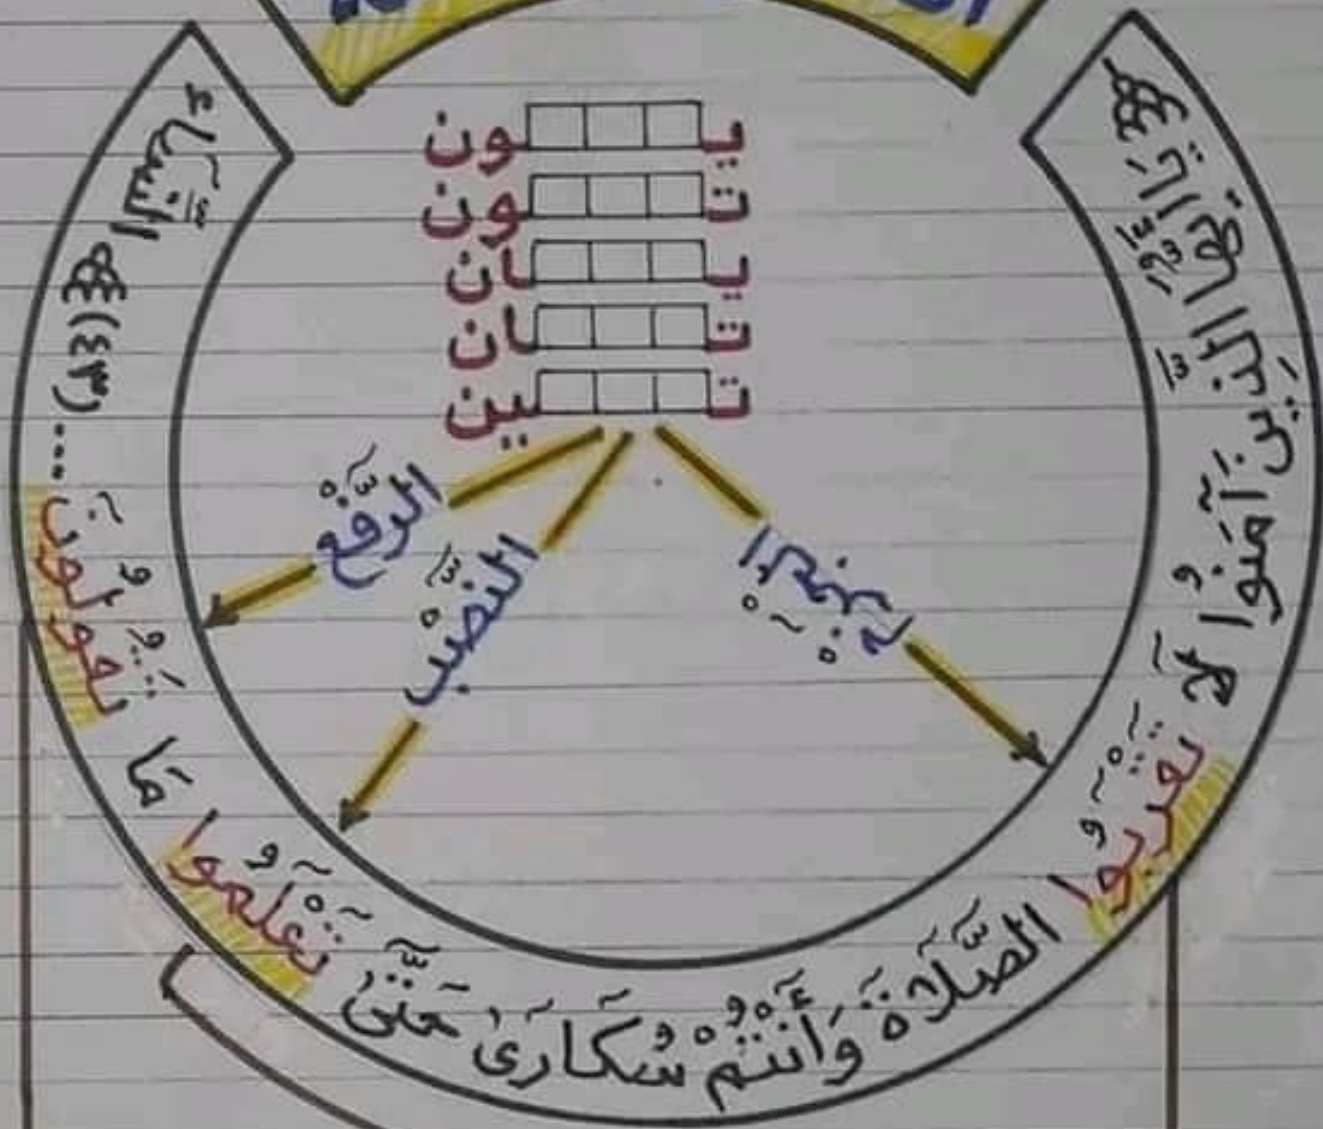 يـ ـون
تـ ـون
يـ ـان
تـ ـان
تـ ـين
الرَّفْع
النَّصْب
الجَزْم
يَا أَيُّهَا الَّذِينَ آمَنُوا لَا تَقْرَبُوا الصَّلَاةَ وَأَنْتُمْ سُكَارَىٰ حَتَّىٰ تَعْلَمُوا مَا تَقُولُونَ .... (٤٣) النِّسَاء